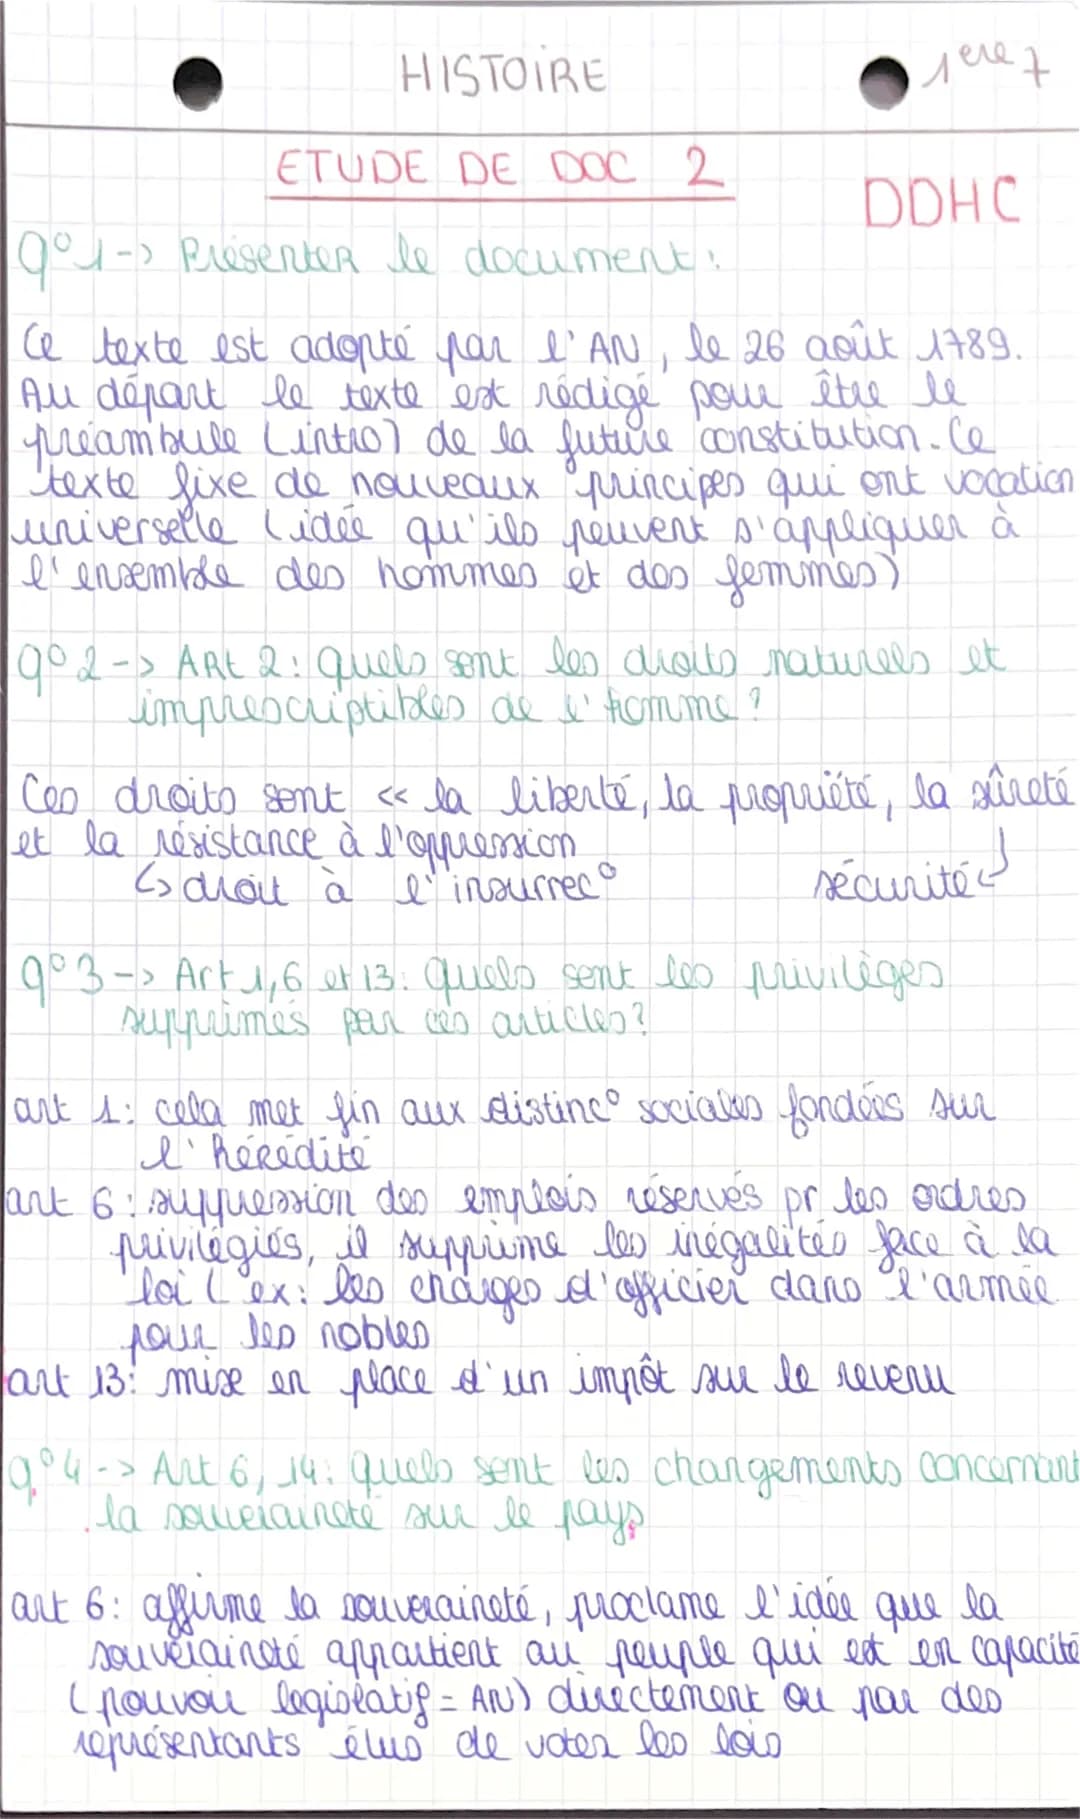 HISTOIRE
1ère 7
ETUDE DE DOC 2
DDHC
q°1-> Présenter le document :
Ce texte est adopté par l'AN, le 26 août 1789.
Au départ le texte est rédigé pour être le
préambule (intro) de la future constitution. Ce
texte fixe de nouveaux principes qui ont vocation
universelle (idée qu'ils peuvent s'appliquer à
l'ensemble des hommes et des femmes)
q°2-> Art 2 : quels sont les droits naturels et
imprescriptibles de l'homme ?
Ces droits sont << la liberté, la propriété, la sûreté
et la résistance à l'oppression
↳ droit à l'insurrec°
sécurité ↲
q°3-> Art 1,6 et 13: quels sont les privilèges
supprimés par ces articles?
art 1: cela met fin aux distinc° sociales fondées sur
l'hérédité
art 6: suppression des emplois réservés pr les ordres
privilégiés, il supprime les inégalités face à la
loi (ex: les charges d'officier dans l'armée
pour les nobles
art 13: mise en place d'un impôt sur le revenu
q°4-> Art 6, 14: quels sont les changements concernant
la souveraineté sur le pays
art 6: affirme la souveraineté, proclame l'idée que la
souveraineté appartient au peuple qui est en capacité
(pouvoir legislatif = AN) directement ou par des
représentants élus de voter les lois